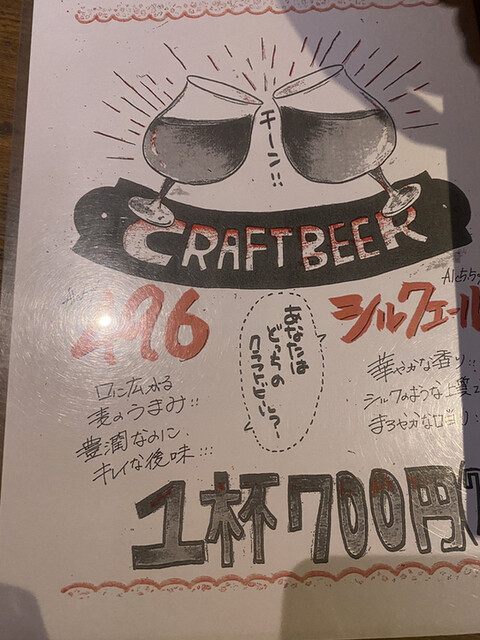 チーン!!
CRAFT BEER
496
口に広がる
麦のうまみ!!
豊潤なのに
キレイな後味…
あなたは
どっちの
クラフトビール?
Alc5.5%
シルクエール
華やかな香り…
シルクのような上質な
まろやかな口当り…
1杯700円